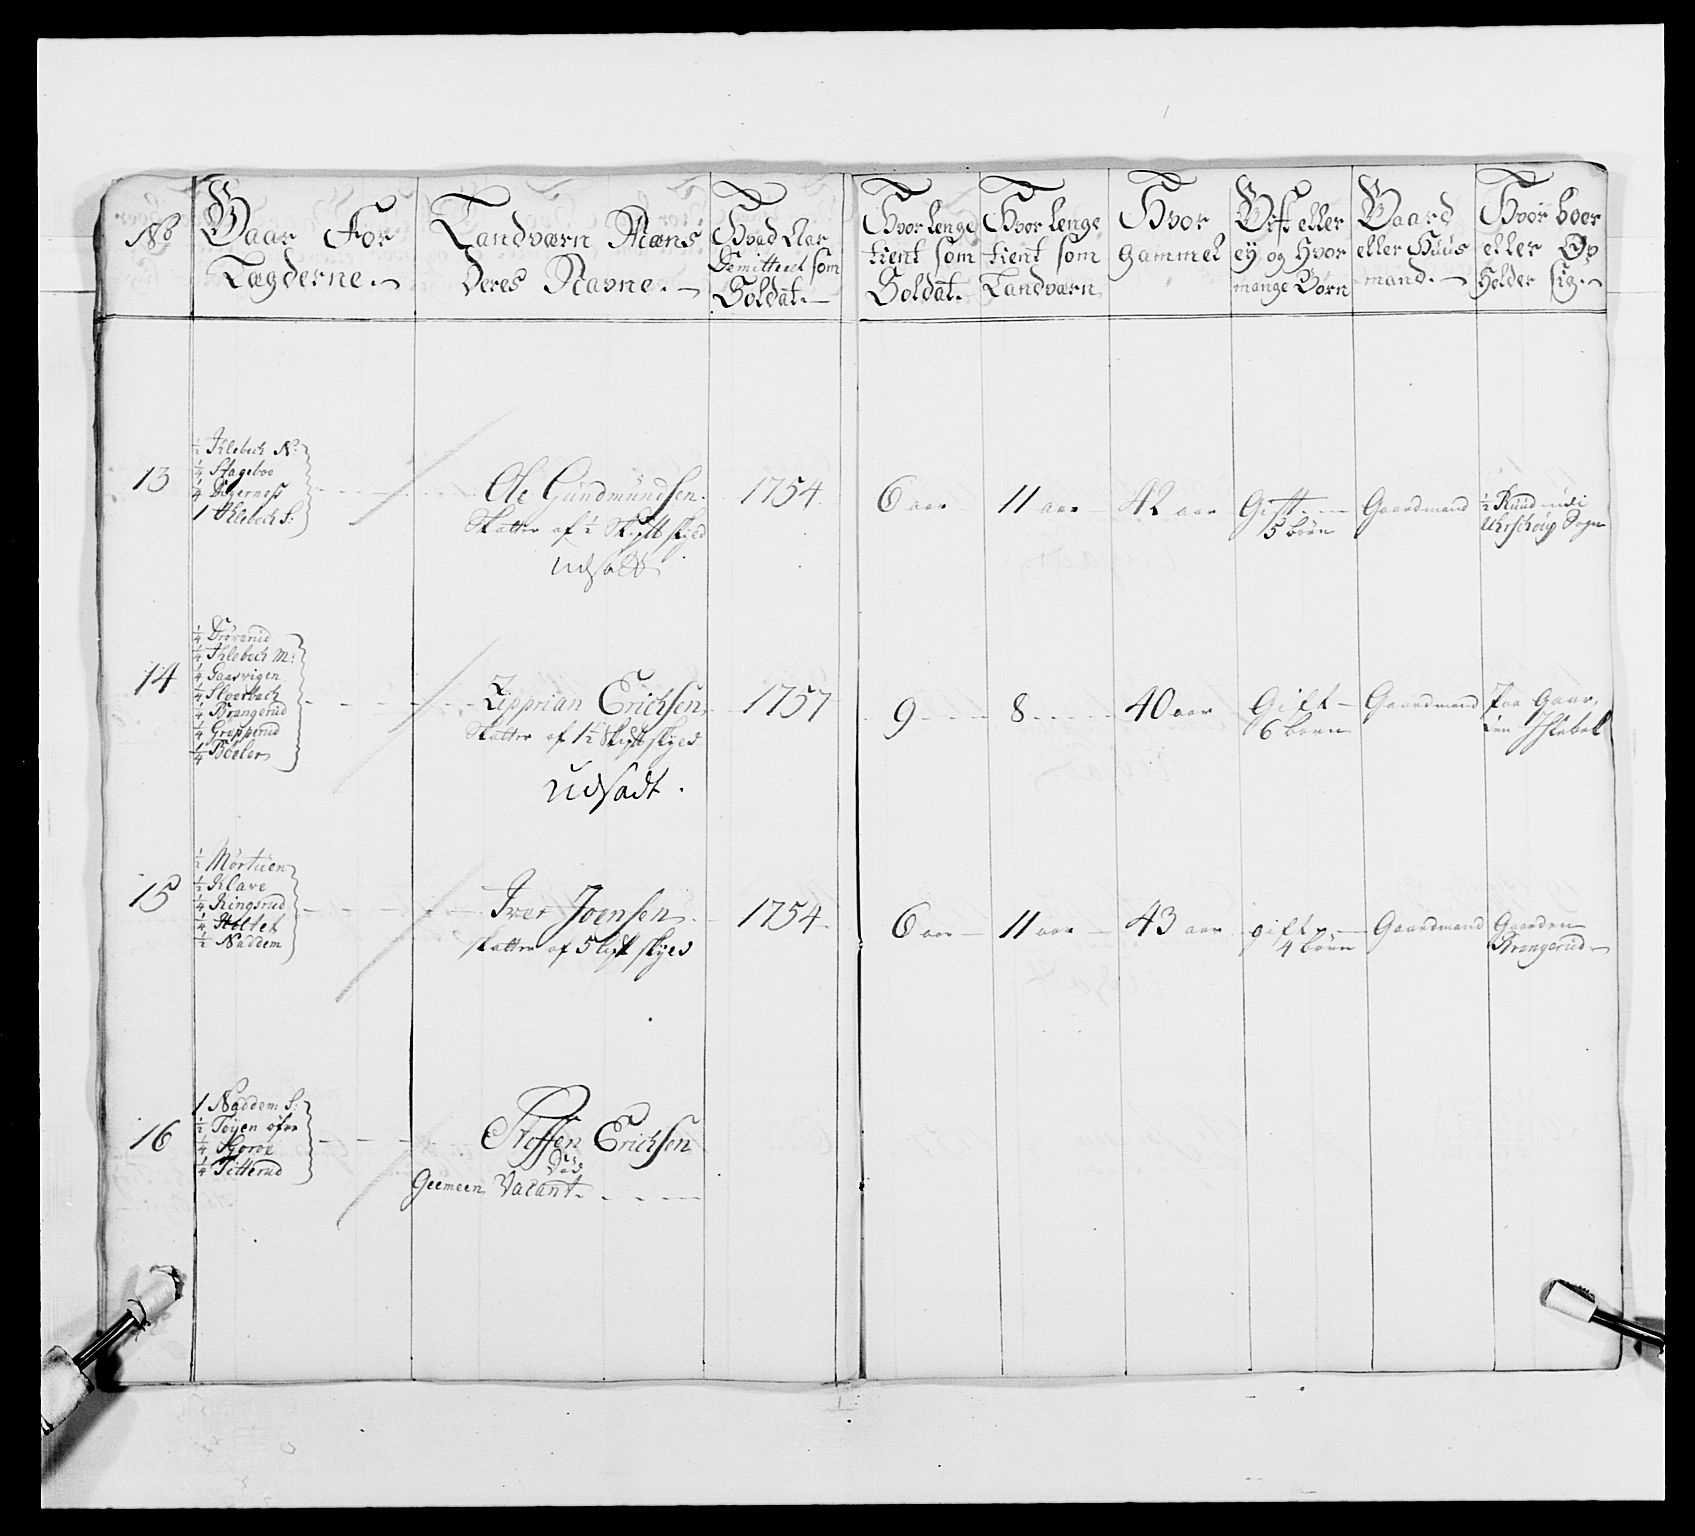 No
Gaar For
Lægderne.
Landværn Mæns
Deres Navne.
Hvad Aar
Demitteret som
Soldat.
Hvor lenge
tient som
Soldat.
Hvor lenge
tient som
Landværn
Hvor
Gammel
Gift eller
ey og Hvor
mange Børn
Gaard
eller Huus
mand.
Hvor boer
eller Op
Holder sig.
13
1/2 Kleboch N:
1/4 Stageboe
1/4 Digerness
1 Kleboch S:
Ole Gundmundsen.
Skatter af 1/2 Skpft skyld
Udsadt
1754.
6 aar
11 aar
42 aar
Gift
5 børn
Gaardmand
1/2 Ruud udi
Uhrschoug Sogn
14
1/4 Drøverud
1/4 Kleboch M:
1/4 Gaasvigen
1/4 Sloerbach
1/4 Brangerud
1/4 Grepperud
1/4 Bøeler
Zipprian Erichsen
Skatter af 1 1/2 Skpft skyld
Udsadt.
1757
9
8
40 aar
Gift
6 børn
Gaardmand
Paa Gaar,
den
15
1/2 Mørtuen
1/2 Klave
1/4 Ringsrud
1/4 Holtet
1/2 Naddem
Iver Joensen
skatter af 5 skyld
1754.
6 aar
11 aar
43 aar
gift
4 børn
Gaardmand
Gaarden
Brangerud
16
1 Naddem S:
1/2 Toyen øfre
1/4
1/4 Titterud
Stoffen Erichsen
Død
Geemeen Vacant.